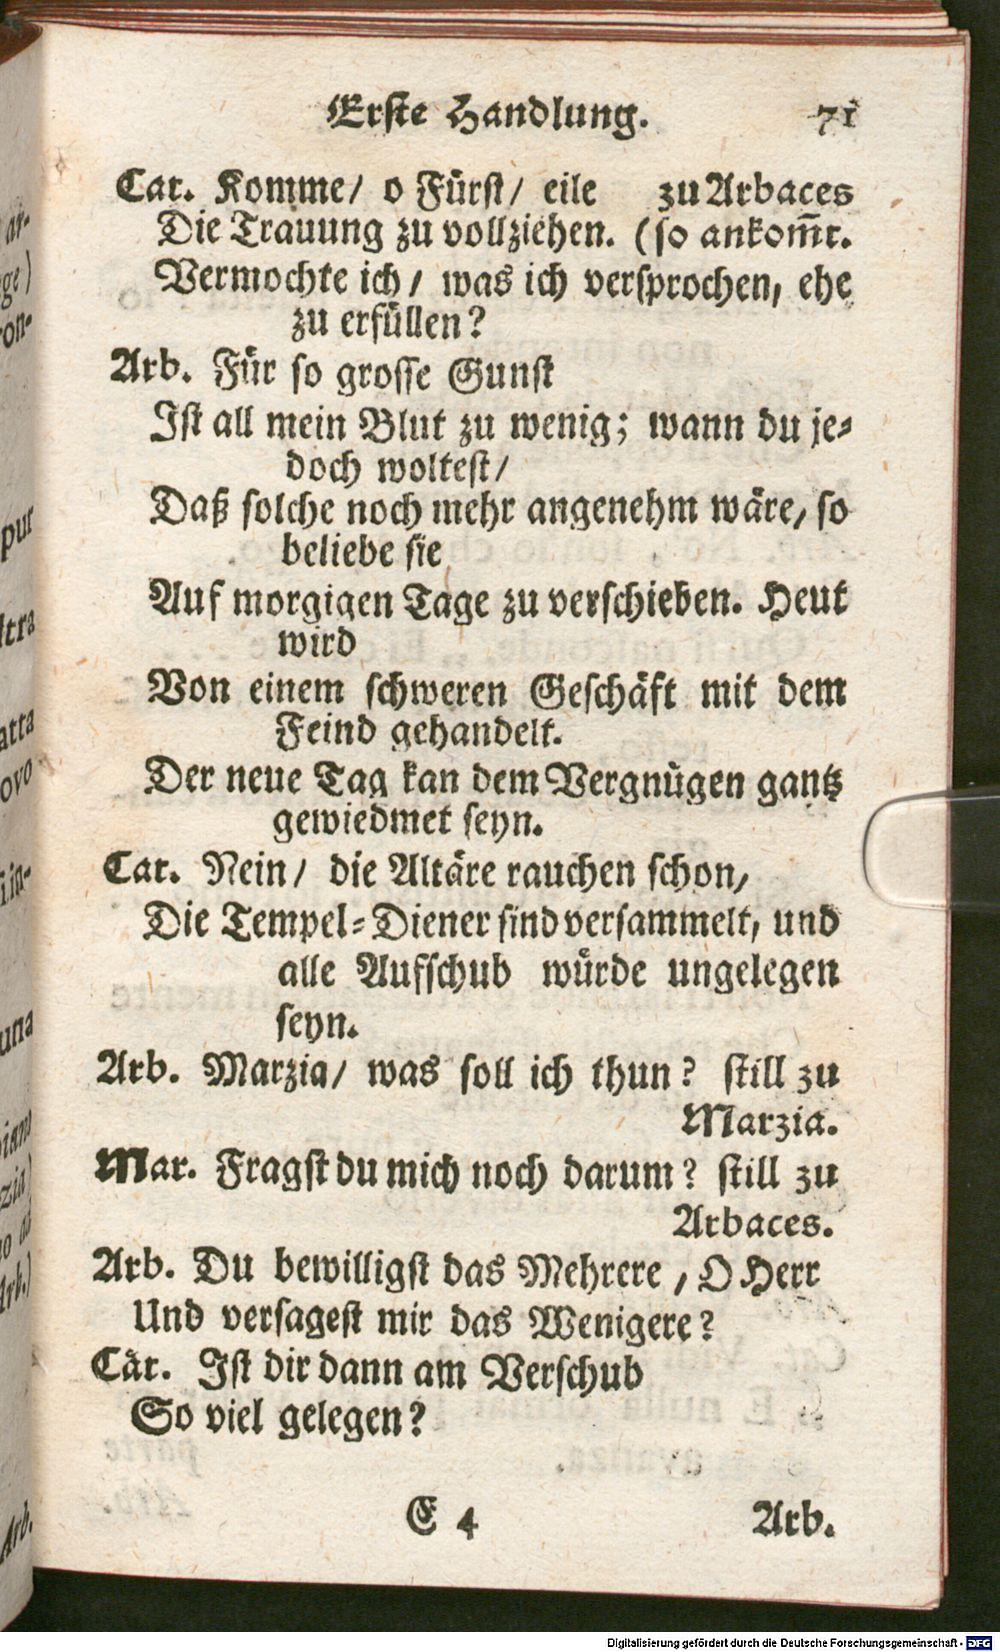 Erste Handlung. 71
Cat. Komme/ o Fürst/ eile zu Arbaces
Die Trauung zu vollziehen. (so ankom̅t.
Vermochte ich/ was ich versprochen, ehe
zu erfüllen?
Arb. Für so grosse Gunst
Ist all mein Blut zu wenig; wann du je-
doch woltest/
Daß solche noch mehr angenehm wäre, so
beliebe sie
Auf morgigen Tage zu verschieben. Heut
wird
Von einem schweren Geschäft mit dem
Feind gehandelt.
Der neue Tag kan dem Vergnügen gantz
gewiedmet seyn.
Cat. Nein/ die Altäre rauchen schon,
Die Tempel-Diener sind versammelt, und
alle Aufschub würde ungelegen
seyn.
Arb. Marzia/ was soll ich thun? still zu
Marzia.
Mar. Fragst du mich noch darum? still zu
Arbaces.
Arb. Du bewilligst das Mehrere, O Herr
Und versagest mir das Wenigere?
Cät. Ist dir dann am Verschub
So viel gelegen?
E 4 Arb.
ar-
ge)
on-
pur
ltra
atta
ovo
una
Arb.)
Arb.
Digitalisierung gefördert durch die Deutsche Forschungsgemeinschaft - DFG